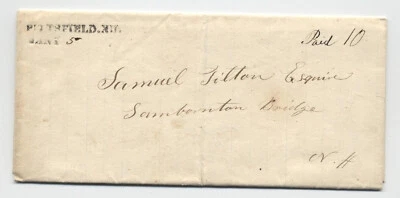 PITTSFIELD. N.H.
5
Paid 10
Samuel Tilton Esquire
Sanbornton Bridge
N. H